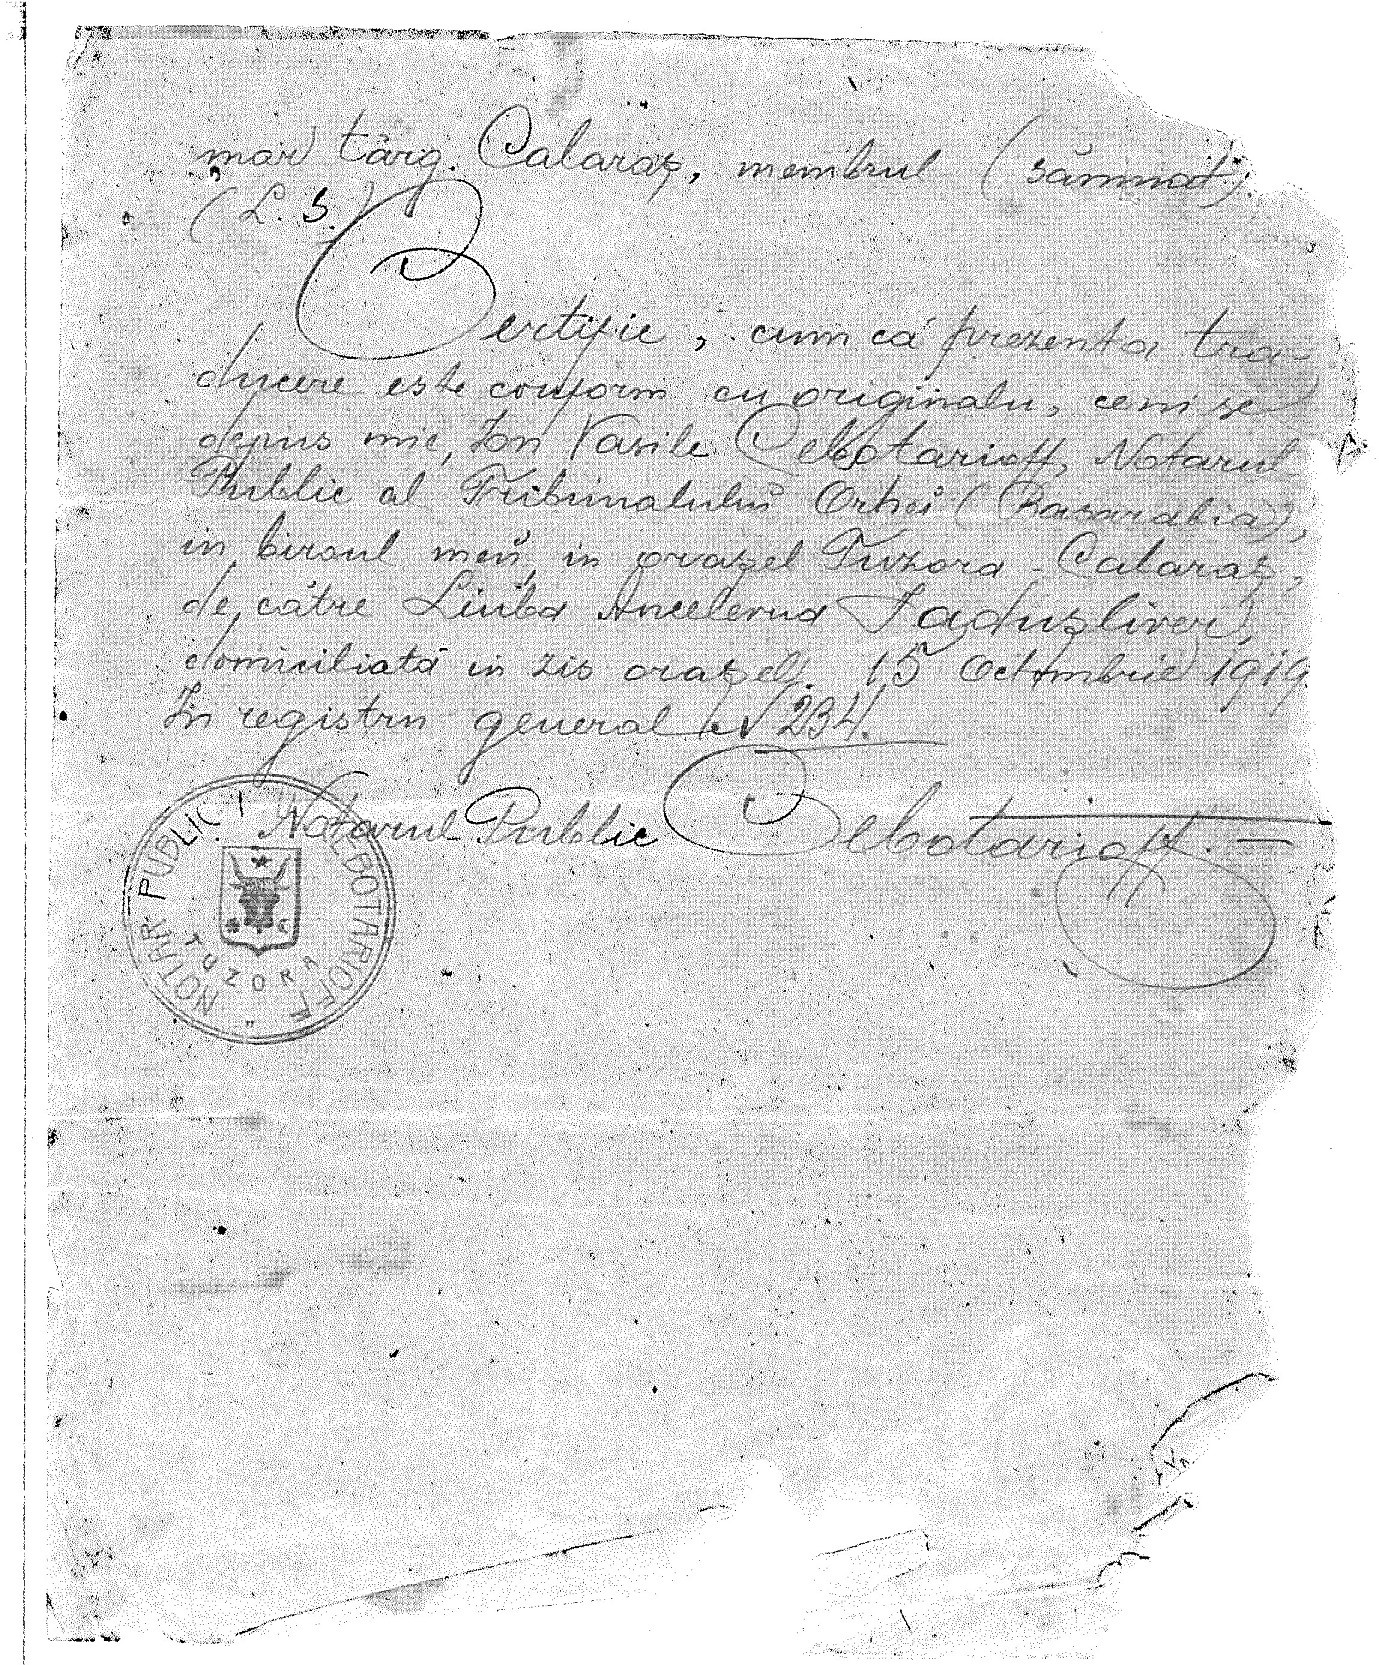 mar târg. Calaraș, membrul (sămnat).
(L. S.)
Certific, cum că prezenta tra-
ducere este conform cu originalu, ce mi se
depus mie, Ion Vasile Cebotarioff, Notarul
Public al Tribunalului Orhei (Basarabia),
in biroul meŭ, in orașel Tuzora - Calaraș,
de cătré Liuba
domiciliată in zis orașel. 15 Octombrie 1919
In registru general № 234.
Notarul Public Cebotarioff. —
NOTAR PUBLIC I. CEBOTARIOFF
TUZORA